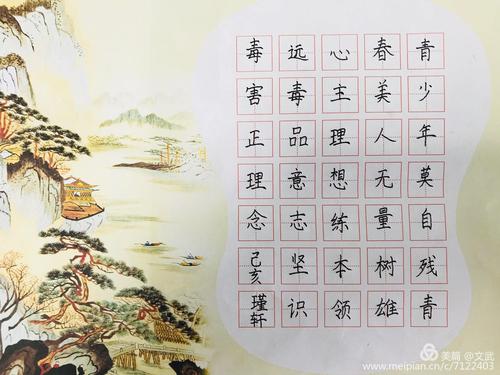 青少年莫自残青
春美人无量树雄
心主理想练本领
远毒品意志坚识
毒害正理念己亥瑾轩
美篇 @文武
www.meipian.cn/c/7122403